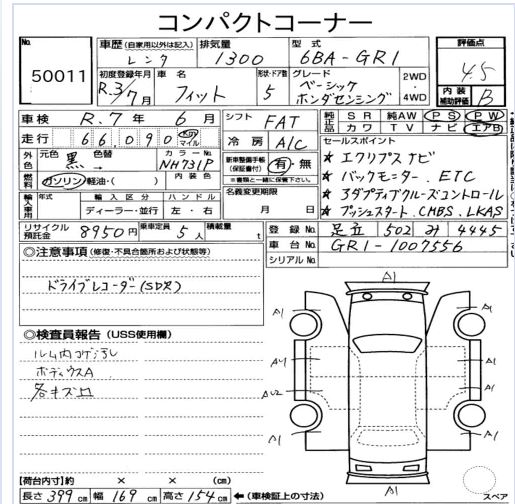 コンパクトコーナー
No. 50011
車歴 (自家用以外は記入) レンタ
排気量 1300
型式 6BA-GR1
評価点 4.5
初度登録年月 R.3/7月
車名 フィット
形状・ドア数 5
グレード ベーシック ホンダセンシング
2WD・4WD
内装補助評価 B
車検 R.7年6月
シフト FAT
純正品 SR 純AW PS PW
カワ TV ナビ エアB
走行 66,090 Km マイル
冷房 A/C
セールスポイント
外色 元色 黒 色替 →
カラーNo. NH731P
内装色
新車整備手帳 (保証書付) 有・無
※書類と一緒に保管下さい。
★ エクリプスナビ
★ バックモニター. ETC
★ アダプティブクルーズコントロール
★ プッシュスタート. CMBS. LKAS
燃料 ガソリン 軽油・( )
名義変更期限 月 日
輸入車用 年式 輸入区分 ディーラー・並行 ハンドル 左・右
リサイクル預託金 8950円
乗車定員 5人
積載量 t
登録No. 足立 502 み 4445
車台No. GR1-1007556
シリアルNo.
◎注意事項 (修復・不具合箇所および状態等)
ドライブレコーダー(SD欠)
◎検査員報告 (USS使用欄)
ルーム内コゲ汚レ
ボディウスA
各キズ凹
A1
A1
A1
A1
A1
AU2
A1
A1
A1
A1
【荷台内寸】約 × × (cm)
長さ 399cm 幅 169cm 高さ 154cm ←(車検証上の寸法)
スペア